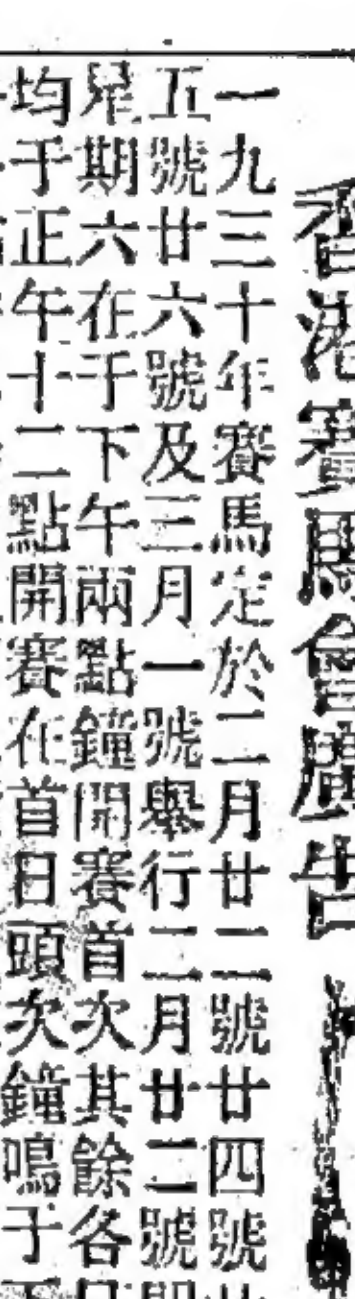 香港賽馬會廣告
一九三十年賽馬定於二月廿二號廿四號廿
五號廿六號及三月一號舉行二月廿二號即
星期六在于下午兩點鐘開賽首次其餘各日
均于正午十二點開賽在首日頭次鐘鳴于下